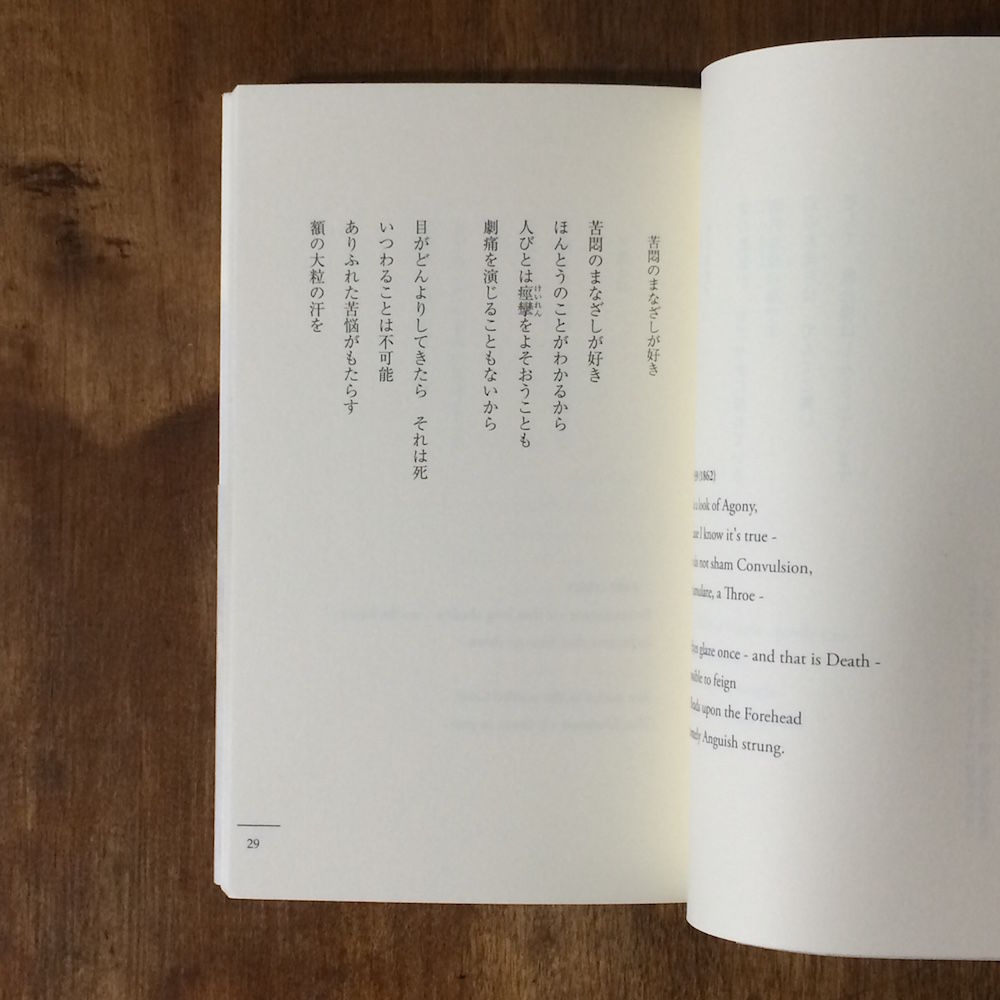 苦悶のまなざしが好き
苦悶のまなざしが好き
ほんとうのことがわかるから
人びとは痙攣をよそおうことも
けいれん
劇痛を演じることもないから
目がどんよりしてきたら　それは死
いつわることは不可能
ありふれた苦悩がもたらす
額の大粒の汗を
29
(1862)
look of Agony,
I know it's true -
not sham Convulsion,
a Throe -
glaze once - and that is Death -
to feign
upon the Forehead
Anguish strung.